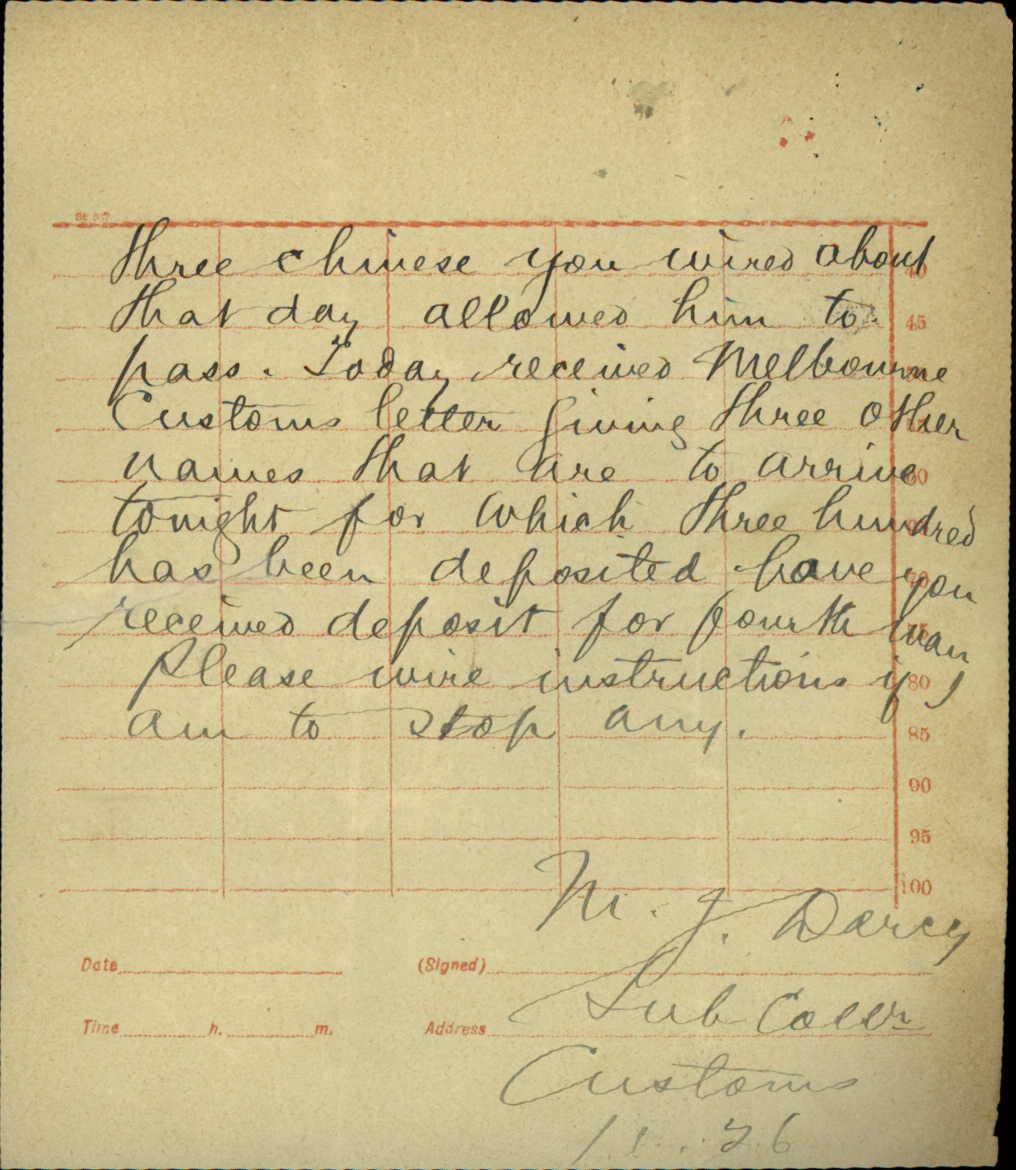 three chinese you wired about
that day allowed him to 45
pass. Today received Melbourne
Customs letter giving three other
names that are to arrive
tonight for which three hundred
has been deposited have you
received deposit for fourth man
Please wire instructions if I 80
am to stop any. 85
90
95
100
M. J. Darcy
Date (Signed)
Sub Collr
Time h. m. Address
Customs